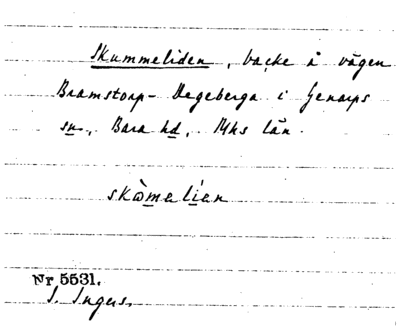 Skummeliden, backe å vägen
Bramstorp - Degeberga i Genarps
sn., Bara hd, Mhs län.
skòmelíen
Nr 5531.
I. Ingers.